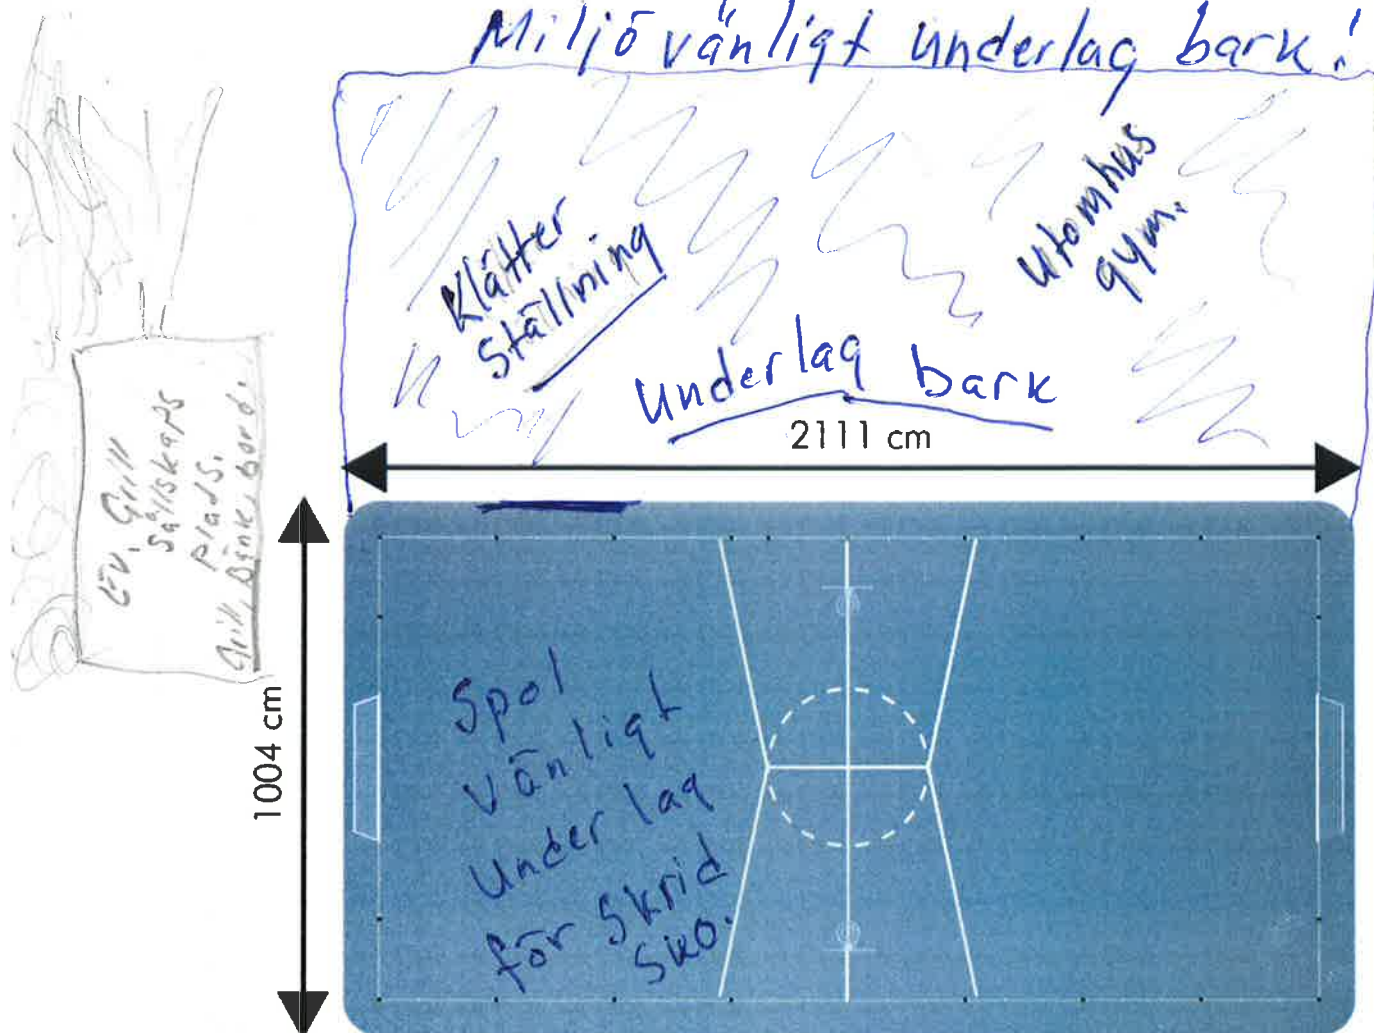 Miljövänligt underlag bark!
Klätter
Ställning
Utomhus
gym.
Underlag bark
2111 cm
Ev. Grill
Sällskaps
plads.
Grill, Bänk, bord.
1004 cm
Spol
vänligt
Under lag
för Skrid
sko.